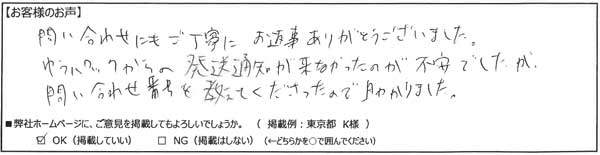 【お客様のお声】
問い合わせにもご丁寧にお返事ありがとうございました。
ゆうパックからの発送通知が来なかったのが不安でしたが、
問い合わせ番号を教えてくださったので助かりました。
■弊社ホームページに、ご意見を掲載してもよろしいでしょうか。（ 掲載例：東京都 K様 ）
☑ OK（掲載していい） □ NG（掲載はしない）（←どちらかを○で囲んでください）